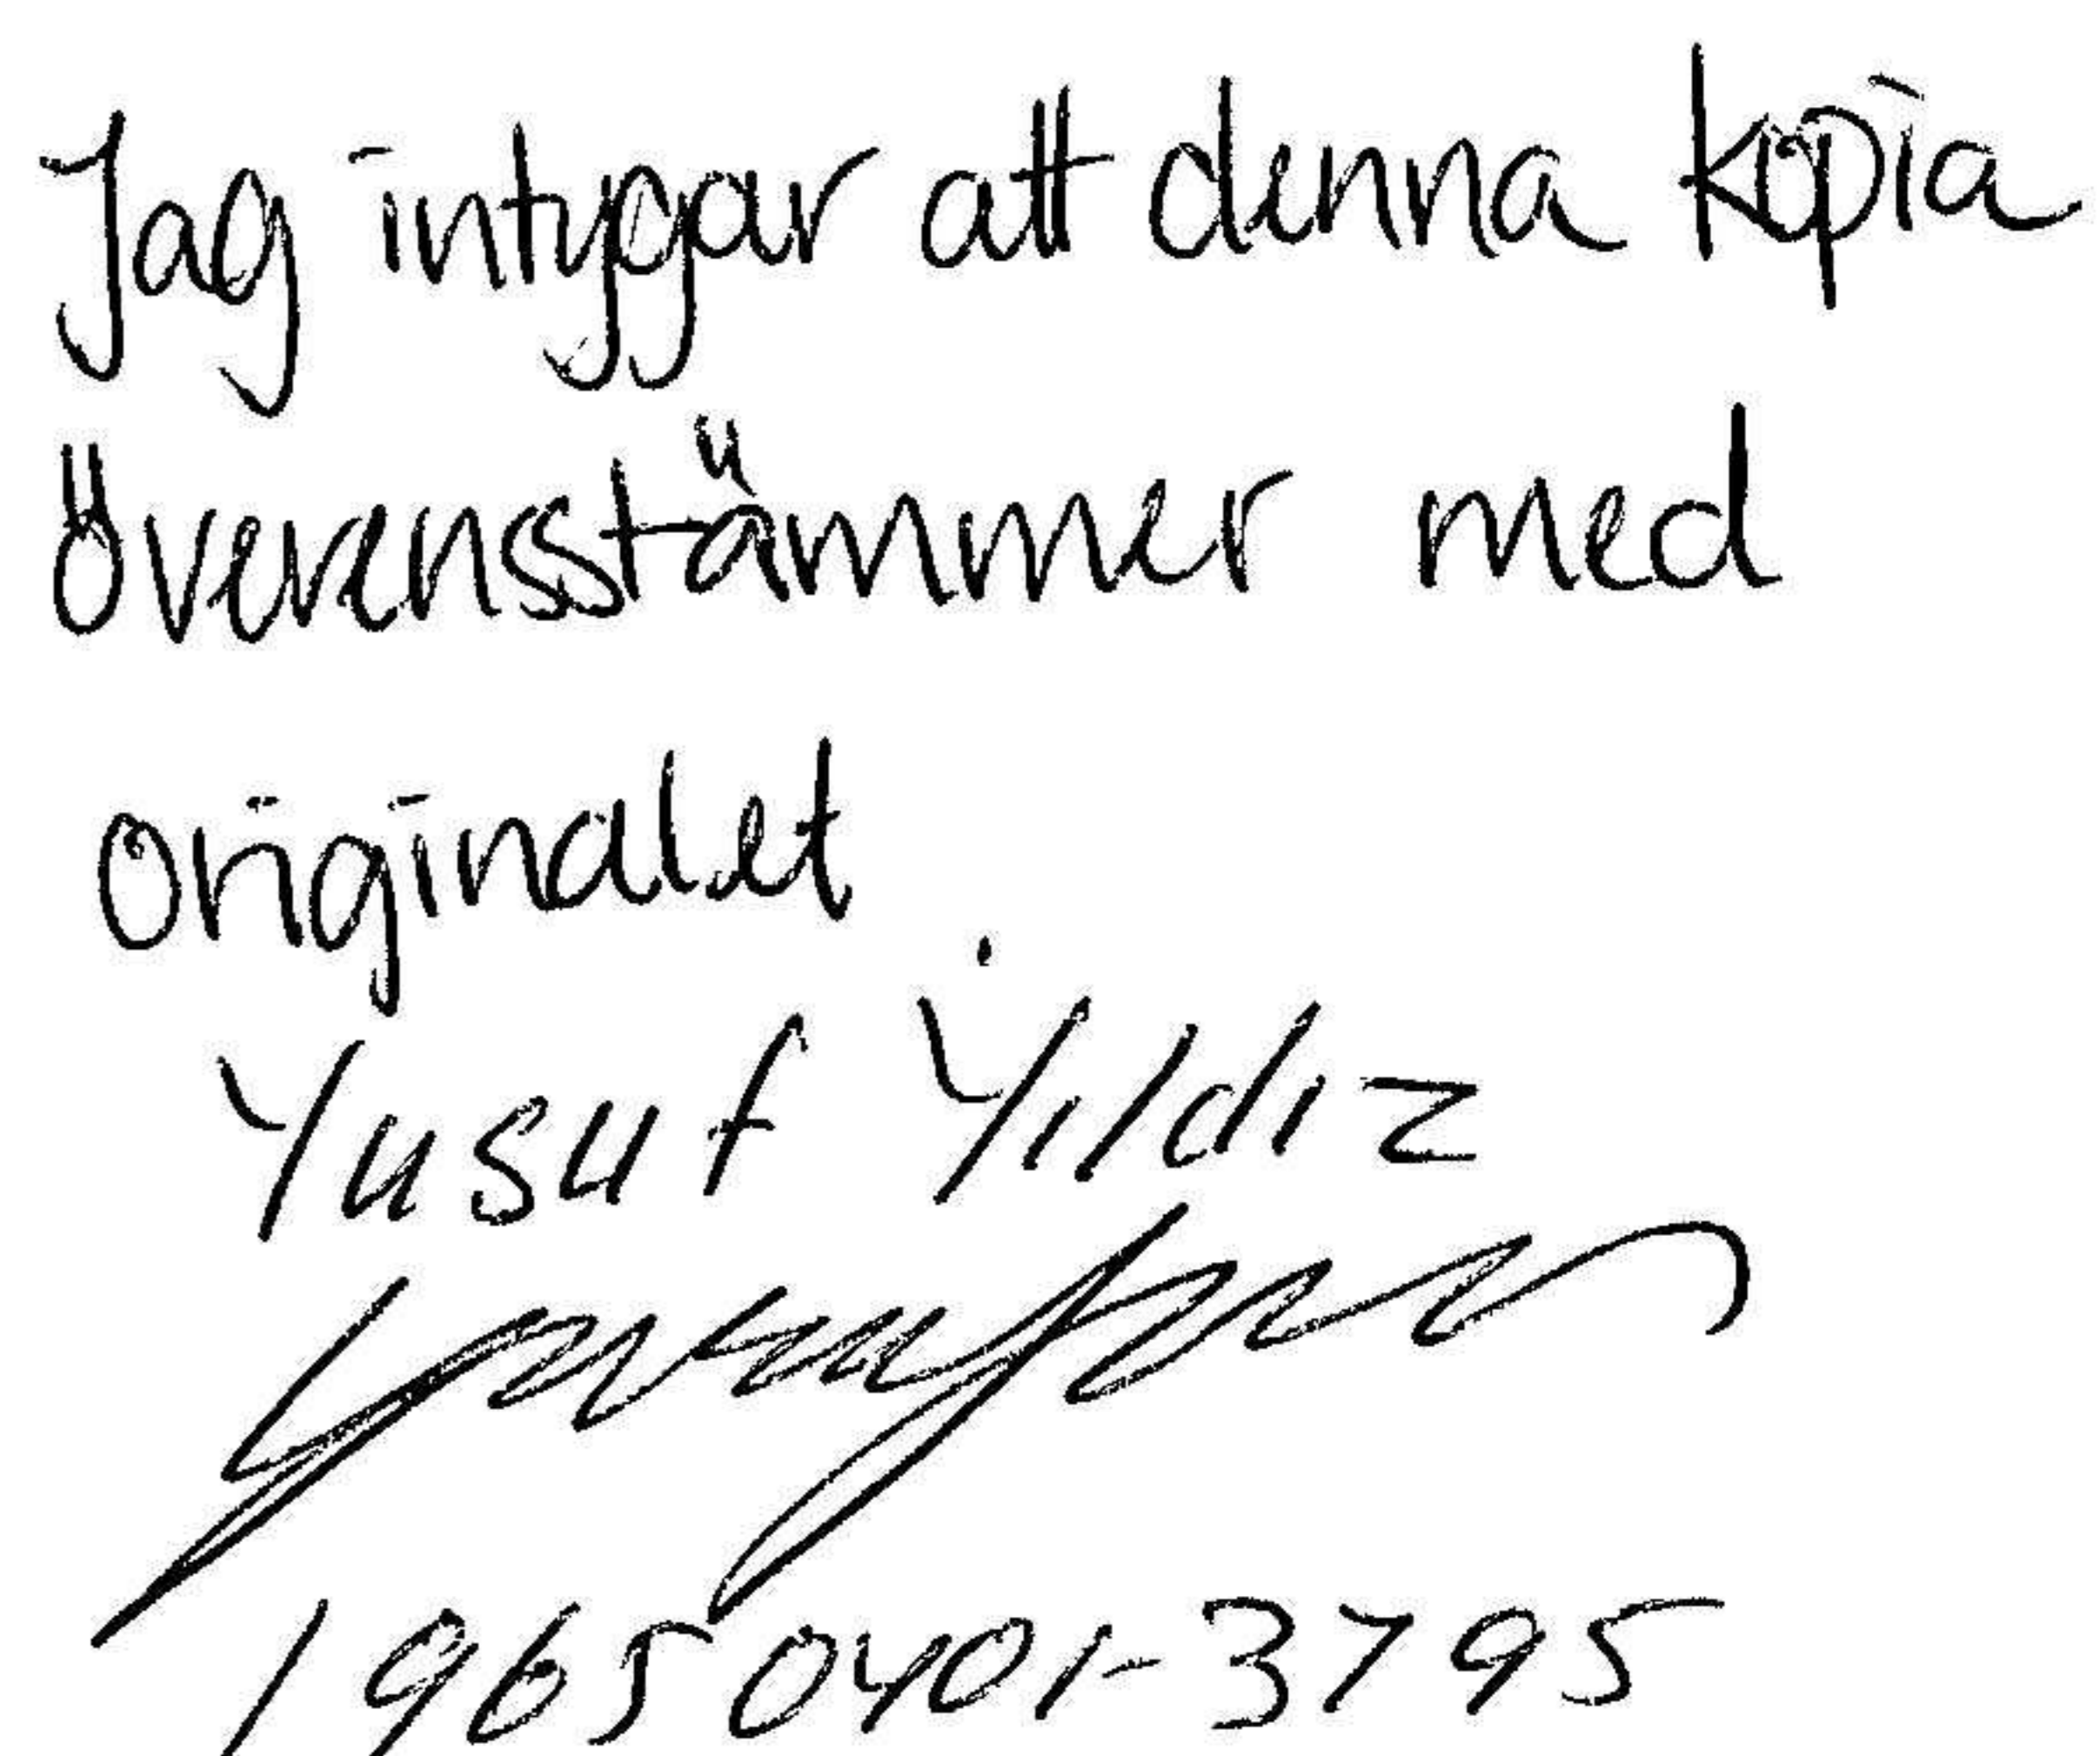 Jag intygar att denna kopia
överensstämmer med
originalet
Yusuf Yıldız
19650401-3795